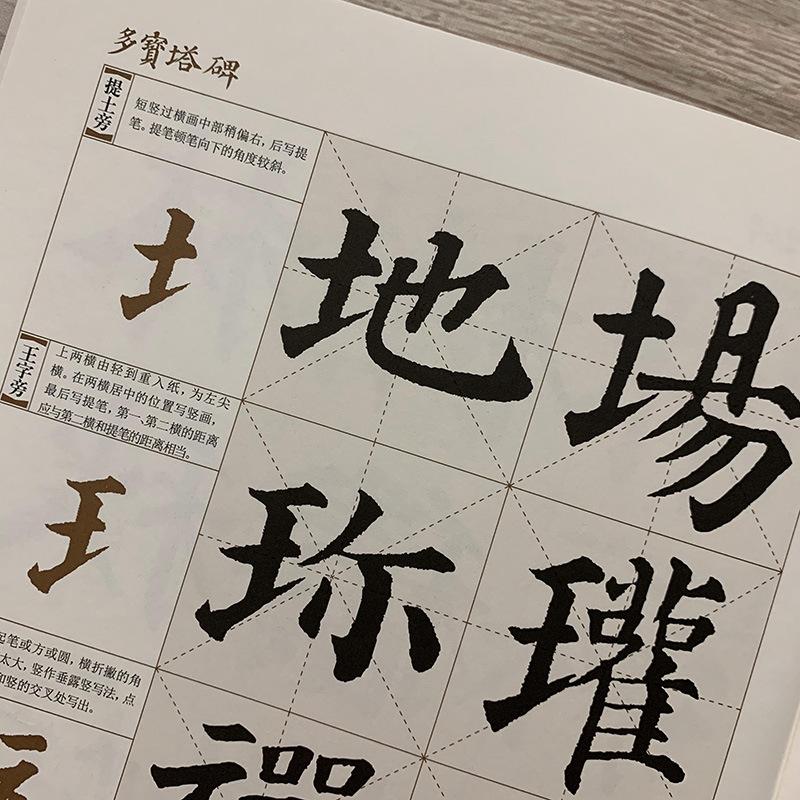 多寶塔碑
提土旁
短竖过横画中部稍偏右，后写提
笔。提笔顿笔向下的角度较斜。
土
地場
王字旁
上两横由轻到重入纸，为左尖
横。在两横居中的位置写竖画，
最后写提笔，第一、第二横的距离
应与第二横和提笔的距离相当。
王
珎瓘
起笔或方或圆，横折撇的角
太大，竖作垂露竖写法，点
和竖的交叉处写出。